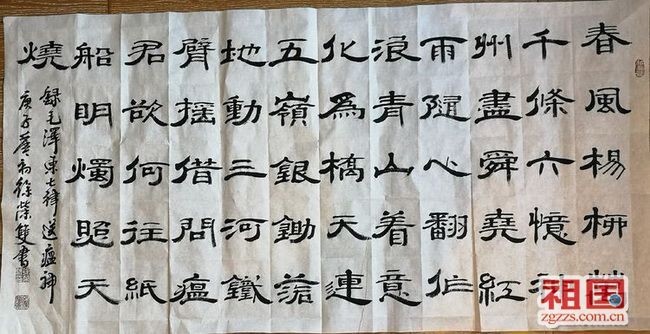 春風楊柳
千條六憶
州盡舜堯紅
雨隨心翻作
浪青山着意
化為橋天連
五嶺銀鋤落
地動三河鐵
臂搖借問瘟
君欲何往紙
船明燭照天
燒
錄毛澤東七律送瘟神
庚子初徐榮雙書
祖国
zgzzs.com.cn